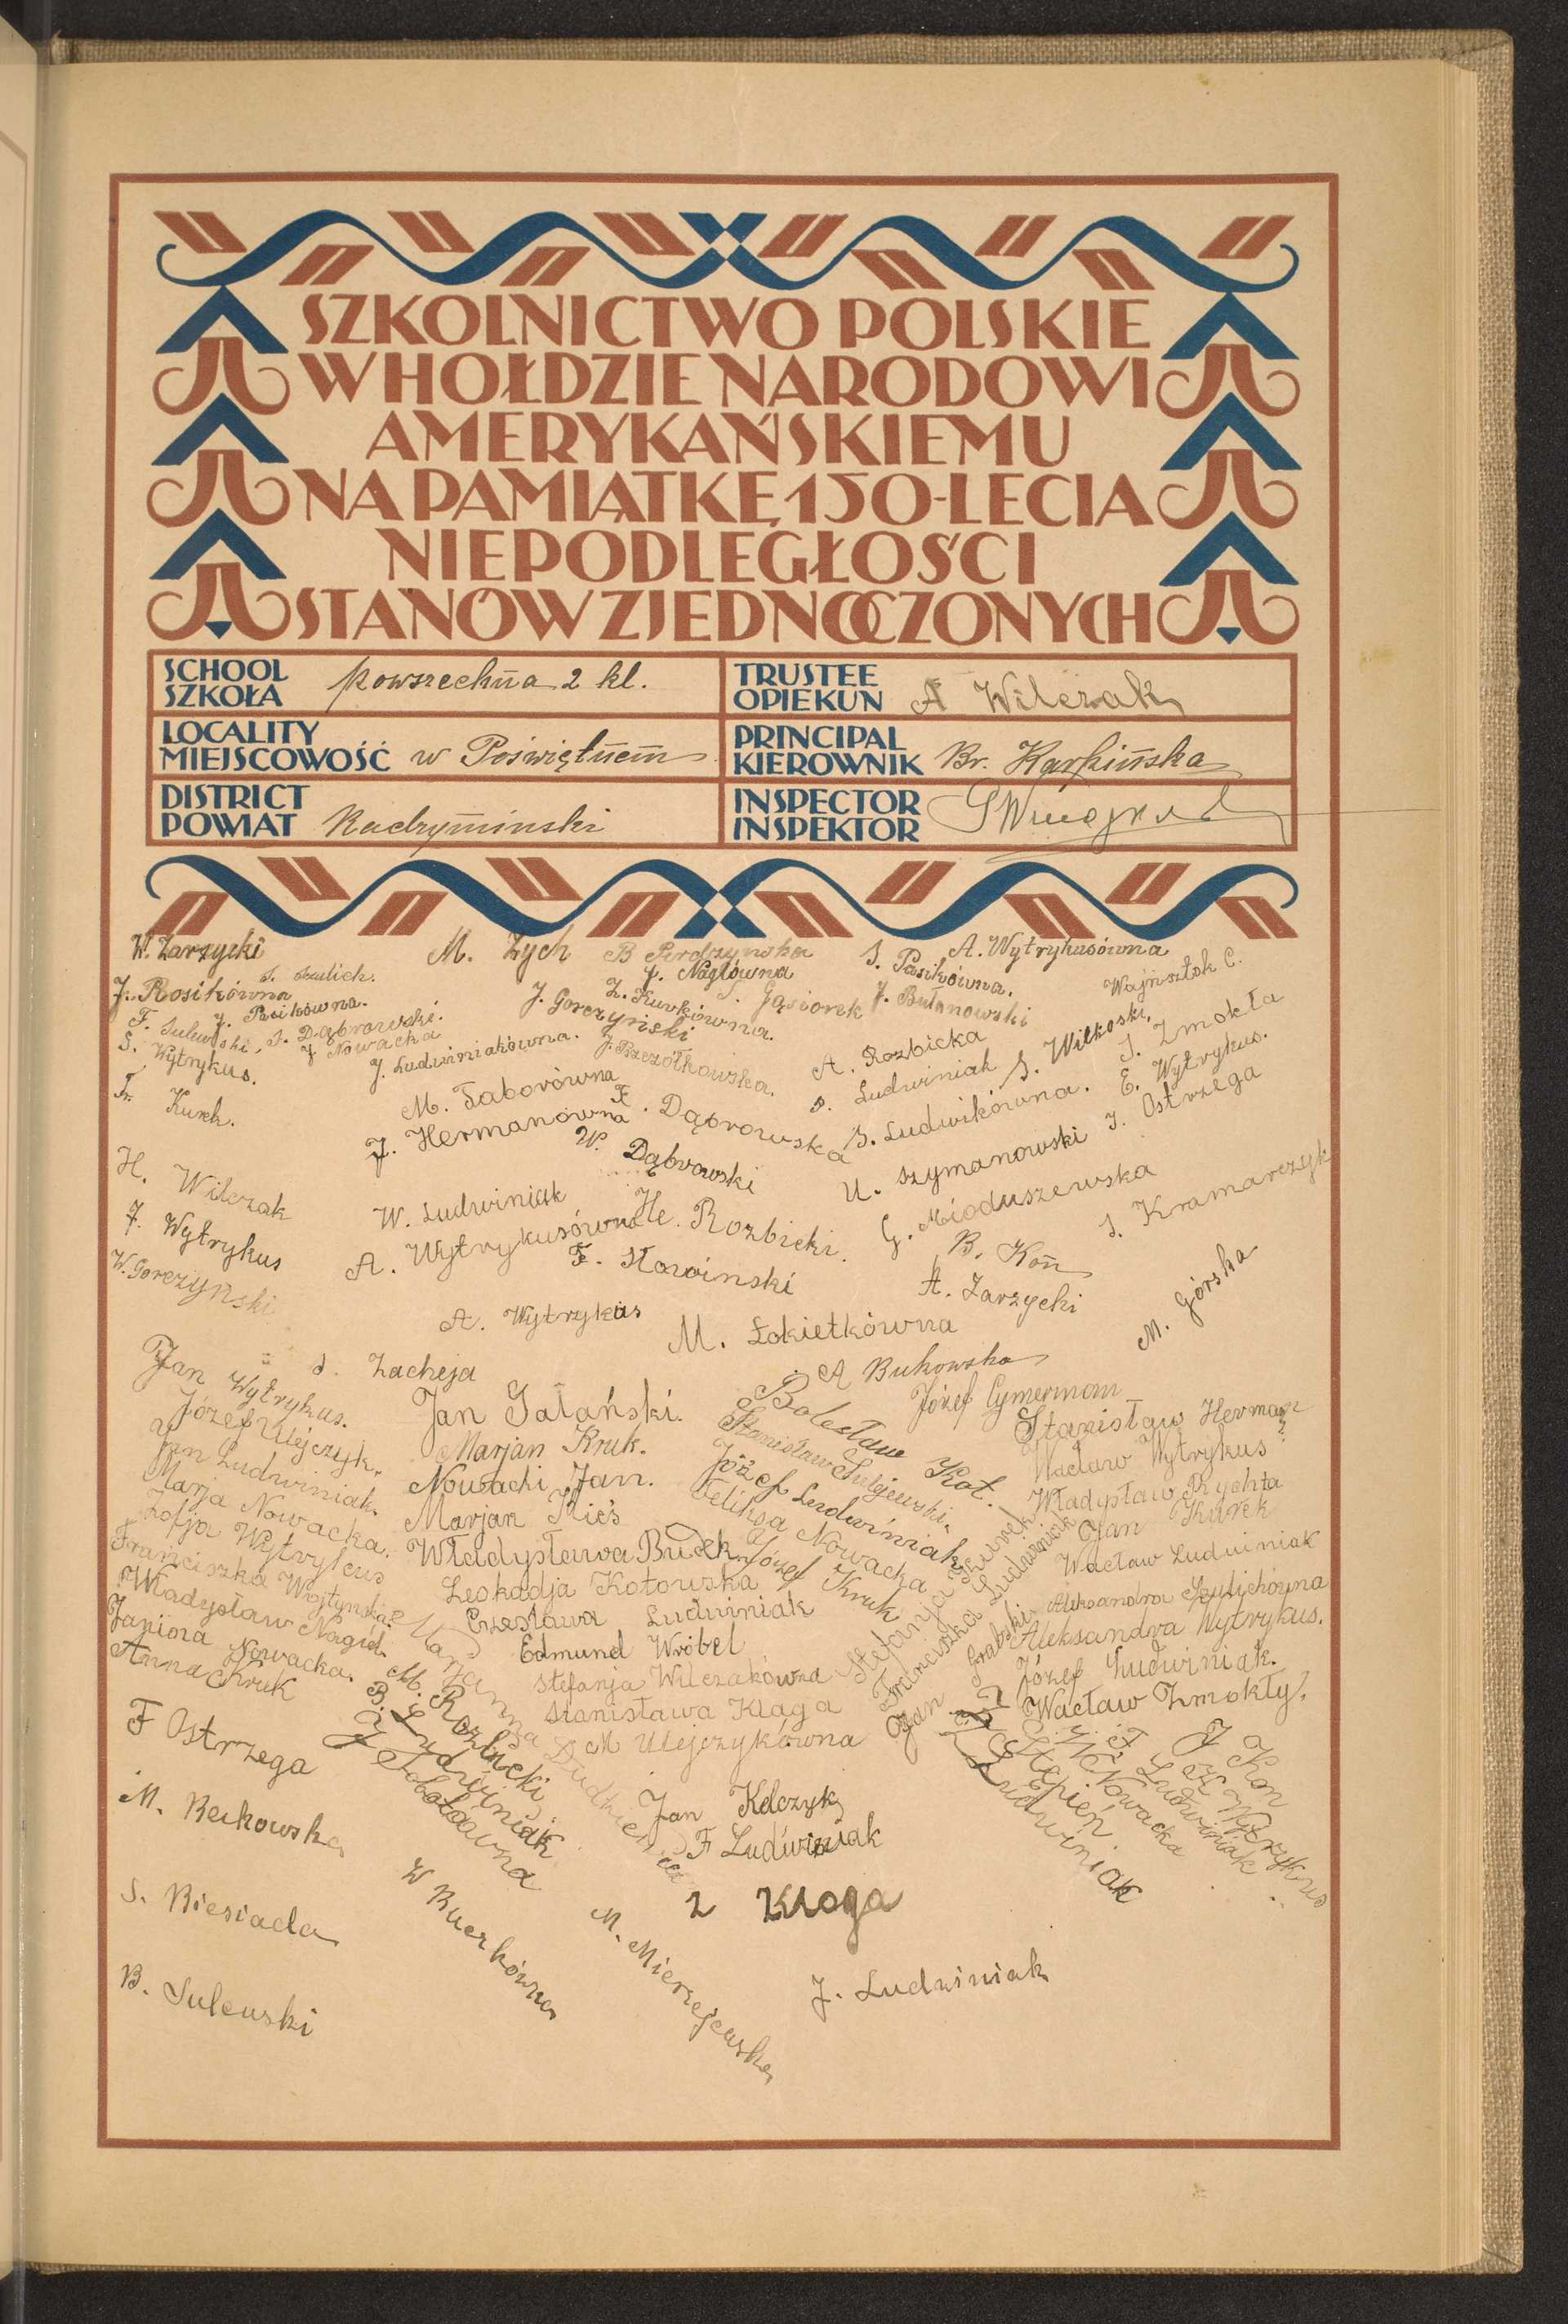 SZKOLNICTWO POLSKIE
W HOŁDZIE NARODOWI
AMERYKAŃSKIEMU
NA PAMIĄTKĘ 150-LECIA
NIEPODLEGŁOŚCI
STANÓW ZJEDNOCZONYCH
SCHOOL
SZKOŁA powszechna 2 kl.
TRUSTEE
OPIEKUN A Wilczak
LOCALITY
MIEJSCOWOŚĆ w Poświętnem
PRINCIPAL
KIEROWNIK Br. Karpińska
DISTRICT
POWIAT Radzymiński
INSPECTOR
INSPEKTOR
W. Zarzycki
M. Zych
B Perdzynska
S. Pasikówna.
A. Wytrykusówna
S. Szulich.
J. Nagłówna
Wajnsztok C.
J. Rosikówna
J. Pasikówna.
Z. Kurkówna.
S. Gąsiorek
J. Bułanowski
F. Sulewski,
S. Dąbrowski.
J. Gorczyński
J. Nowacka
S. Wytrykus.
J. Ludwiniakówna.
J. Pszczółkowska.
A. Rozbicka
S. Wilkoski,
S. Zmokła
Fr. Kurek.
M. Taborówna
F. Dąbrowska
S. Ludwiniak
S. Ludwikówna.
E. Wytrykus.
J. Hermanówna
W. Dąbrowski
U. Szymanowski
J. Ostrzega
H. Wilczak
W. Ludwiniak
He. Rozbicki.
G. Mioduszewska
S. Kramarczyk
J. Wytrykus
A. Wytrykusówna
F. Słowinski
B. Kon
W. Gorczynski
A. Zarzycki
M. Górska
A. Wytrykus
M. Łokietkówna
S. Zacheja
A Bukowska
Jan Wytrykus.
Józef Ulejczyk.
Jan Ludwiniak.
Marja Nowacka.
Zofja Wytrykus
Franciszka Wojtyńska
Władysław Nagid.
Janina Nowacka.
Anna Kruk
Jan Gałański.
Marjan Kruk.
Nowacki Jan.
Marjan Kieś
Władysława Budek
Leokadja Kotowska
Czesława Ludwiniak
Edmund Wróbel
Stefanja Wilczakówna
Stanisława Klaga
M Ulejczykówna
Bolesław Kot.
Stanisław Sulejewski.
Józef Ludwiniak
Feliksa Nowacka
Józef Kruk
Józef Cymerman
Stanisław Herman
Wacław Wytrykus
Władysław Rychta
Jan Kurek
Wacław Ludwiniak
Aleksandra Szulichówna
Aleksandra Wytrykus.
Józef Ludwiniak.
Wacław Zmokły.
Stefanja Kurek
Franciszka Ludwiniak
Jan Grabski
Marjanna
M. Rozbicki
B. Ludwiniak
J Sobotówna
F Ostrzega
M. Berkowska
S. Biesiada
B. Sulewski
W Buczkówna
M. Mierzejewska
Jan Kelczyk
F Ludwiniak
Z Kloga
J. Ludwiniak
J Kon
K Wytrykus
F. Ludwiniak
W. Nowacka
C Stępień.
Z Ludwiniak